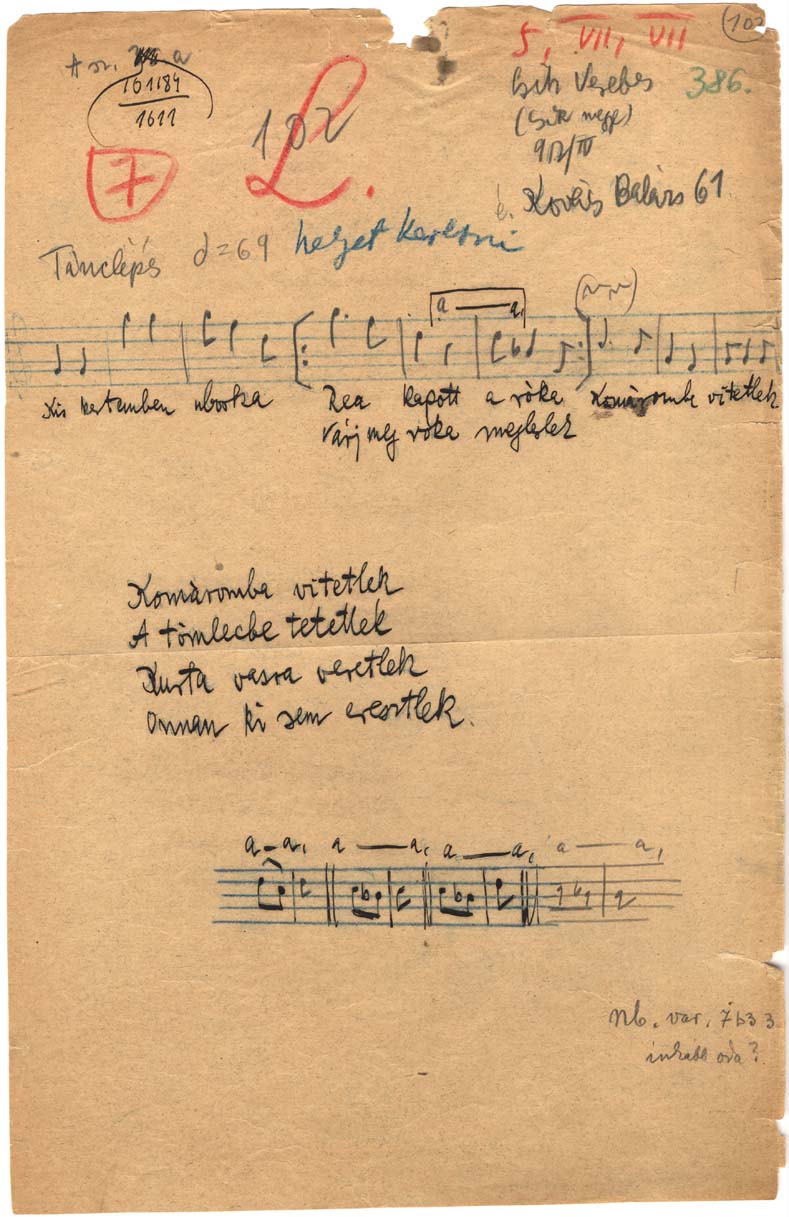 102
5, VII, VII
161184
1611
386.
7
102
L.
912/IV
Kovács Balázs 61.
Tánclépés ♩=69 helyet keresni
a — a,
Kis kertemben uborka Rea kapott a róka Komáromba vitetlek
Várj meg róka megleslek
Komáromba vitetlek
A tömlecbe tetetlek
Kurta vasra veretlek
Onnan ki sem eresztlek.
a - a, a — a, a — a, a — a,
Nb. var. 7b33
inkább oda?